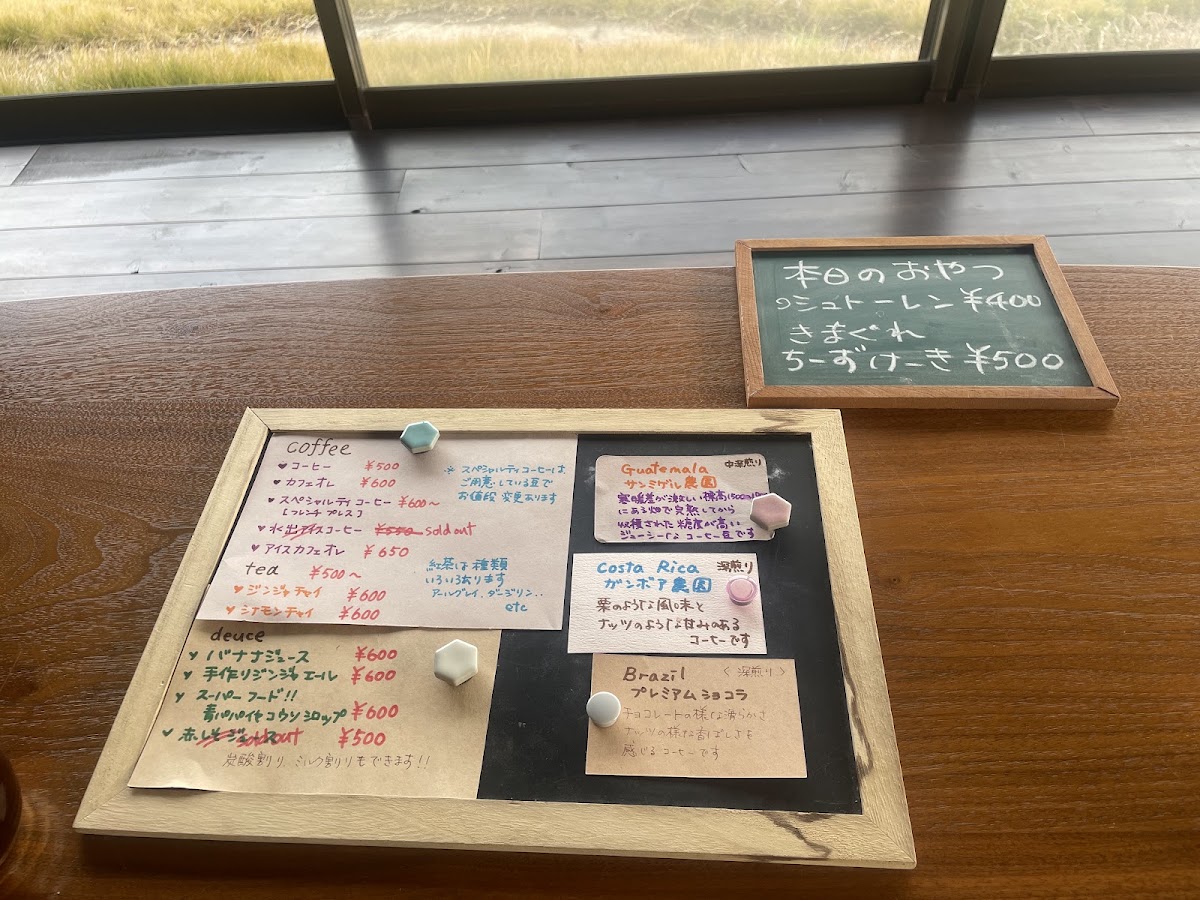 本日のおやつ
シュトーレン ¥400
きまぐれ
ちーずけーき ¥500
coffee
コーヒー ¥500
カフェオレ ¥600
スペシャルティコーヒー ¥600〜
[フレンチプレス]
水出アイスコーヒー ¥550 soldout
アイスカフェオレ ¥650
※スペシャルティコーヒーは
ご用意している豆で
お値段変更あります
tea ¥500〜
ジンジャチャイ ¥600
シナモンチャイ ¥600
紅茶は種類
いろいろあります
アールグレイ、ダージリン..
etc
deuce
バナナジュース ¥600
手作りジンジャエール ¥600
スーパーフード!!
青パパイヤコウソシロップ ¥600
赤しそジュース soldout ¥500
炭酸割り、ミルク割りもできます!!
Guatemala 中深煎り
サンミゲル農園
寒暖差が激しい標高1500m
にある畑で完熟してから
収穫された糖度が高い
ジューシーなコーヒー豆です
Costa Rica 深煎り
ガンボア農園
栗のような風味と
ナッツのような甘みのある
コーヒーです
Brazil <深煎り>
プレミアムショコラ
チョコレートの様な滑らかさ
ナッツの様な香ばしさを
感じるコーヒーです